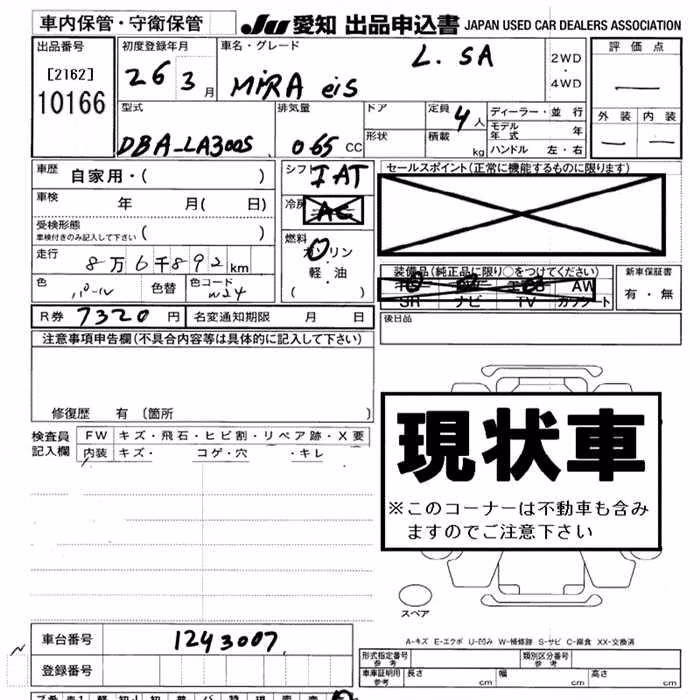 車内保管・守衛保管 JU 愛知 出品申込書 JAPAN USED CAR DEALERS ASSOCIATION
出品番号 [2162] 10166
初度登録年月 26 3 月
車名・グレード MIRA eis L. SA
2WD・4WD
評価点 —
外装 内装
— —
型式 DBA-LA300S
排気量 065 CC
ドア
形状
定員 4 人
積載 kg
ディーラー・並行
モデル年式 年
ハンドル 左・右
車歴 自家用・( )
車検 年 月( 日)
受検形態 ( )
車検付きのみ記入して下さい
走行 8万6千892 km
色 パール 色替 色コード W24
シフト IAT
冷房 AC
燃料 ガソリン・軽油
( )
セールスポイント(正常に機能するものに限ります)
装備品(純正品に限り○をつけてください)
AW
SR ナビ TV カワシート
新車保証書
有・無
R券 7320 円 名変通知期限 月 日
後日品
注意事項申告欄(不具合内容等は具体的に記入して下さい)
修復歴 有 〔箇所 〕
検査員記入欄
FW キズ・飛石・ヒビ割・リペア跡・X要
内装 キズ・ コゲ・穴 ・キレ
現状車
※このコーナーは不動車も含み
ますのでご注意下さい
スペア
A-キズ E-エクボ U-凹み W-補修跡 S-サビ C-腐食 XX-交換済
車台番号 1243007
登録番号
形式指定番号 参考
類別区分番号 参考
車庫証明用 参考 長さ cm 幅 cm 高さ cm